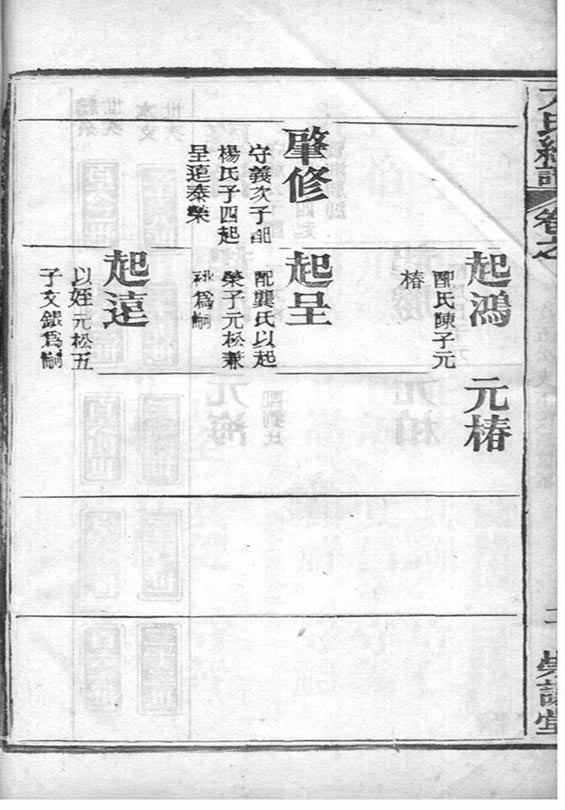 肇修
守義次子配
楊氏子四起
呈遠泰榮
起鴻
配氏陳子元
椿
起呈
配龔氏以起
榮子元松兼
祧爲嗣
起遠
以姪元松五
子文銀爲嗣
元椿
氏縂譜
卷之
二
堂